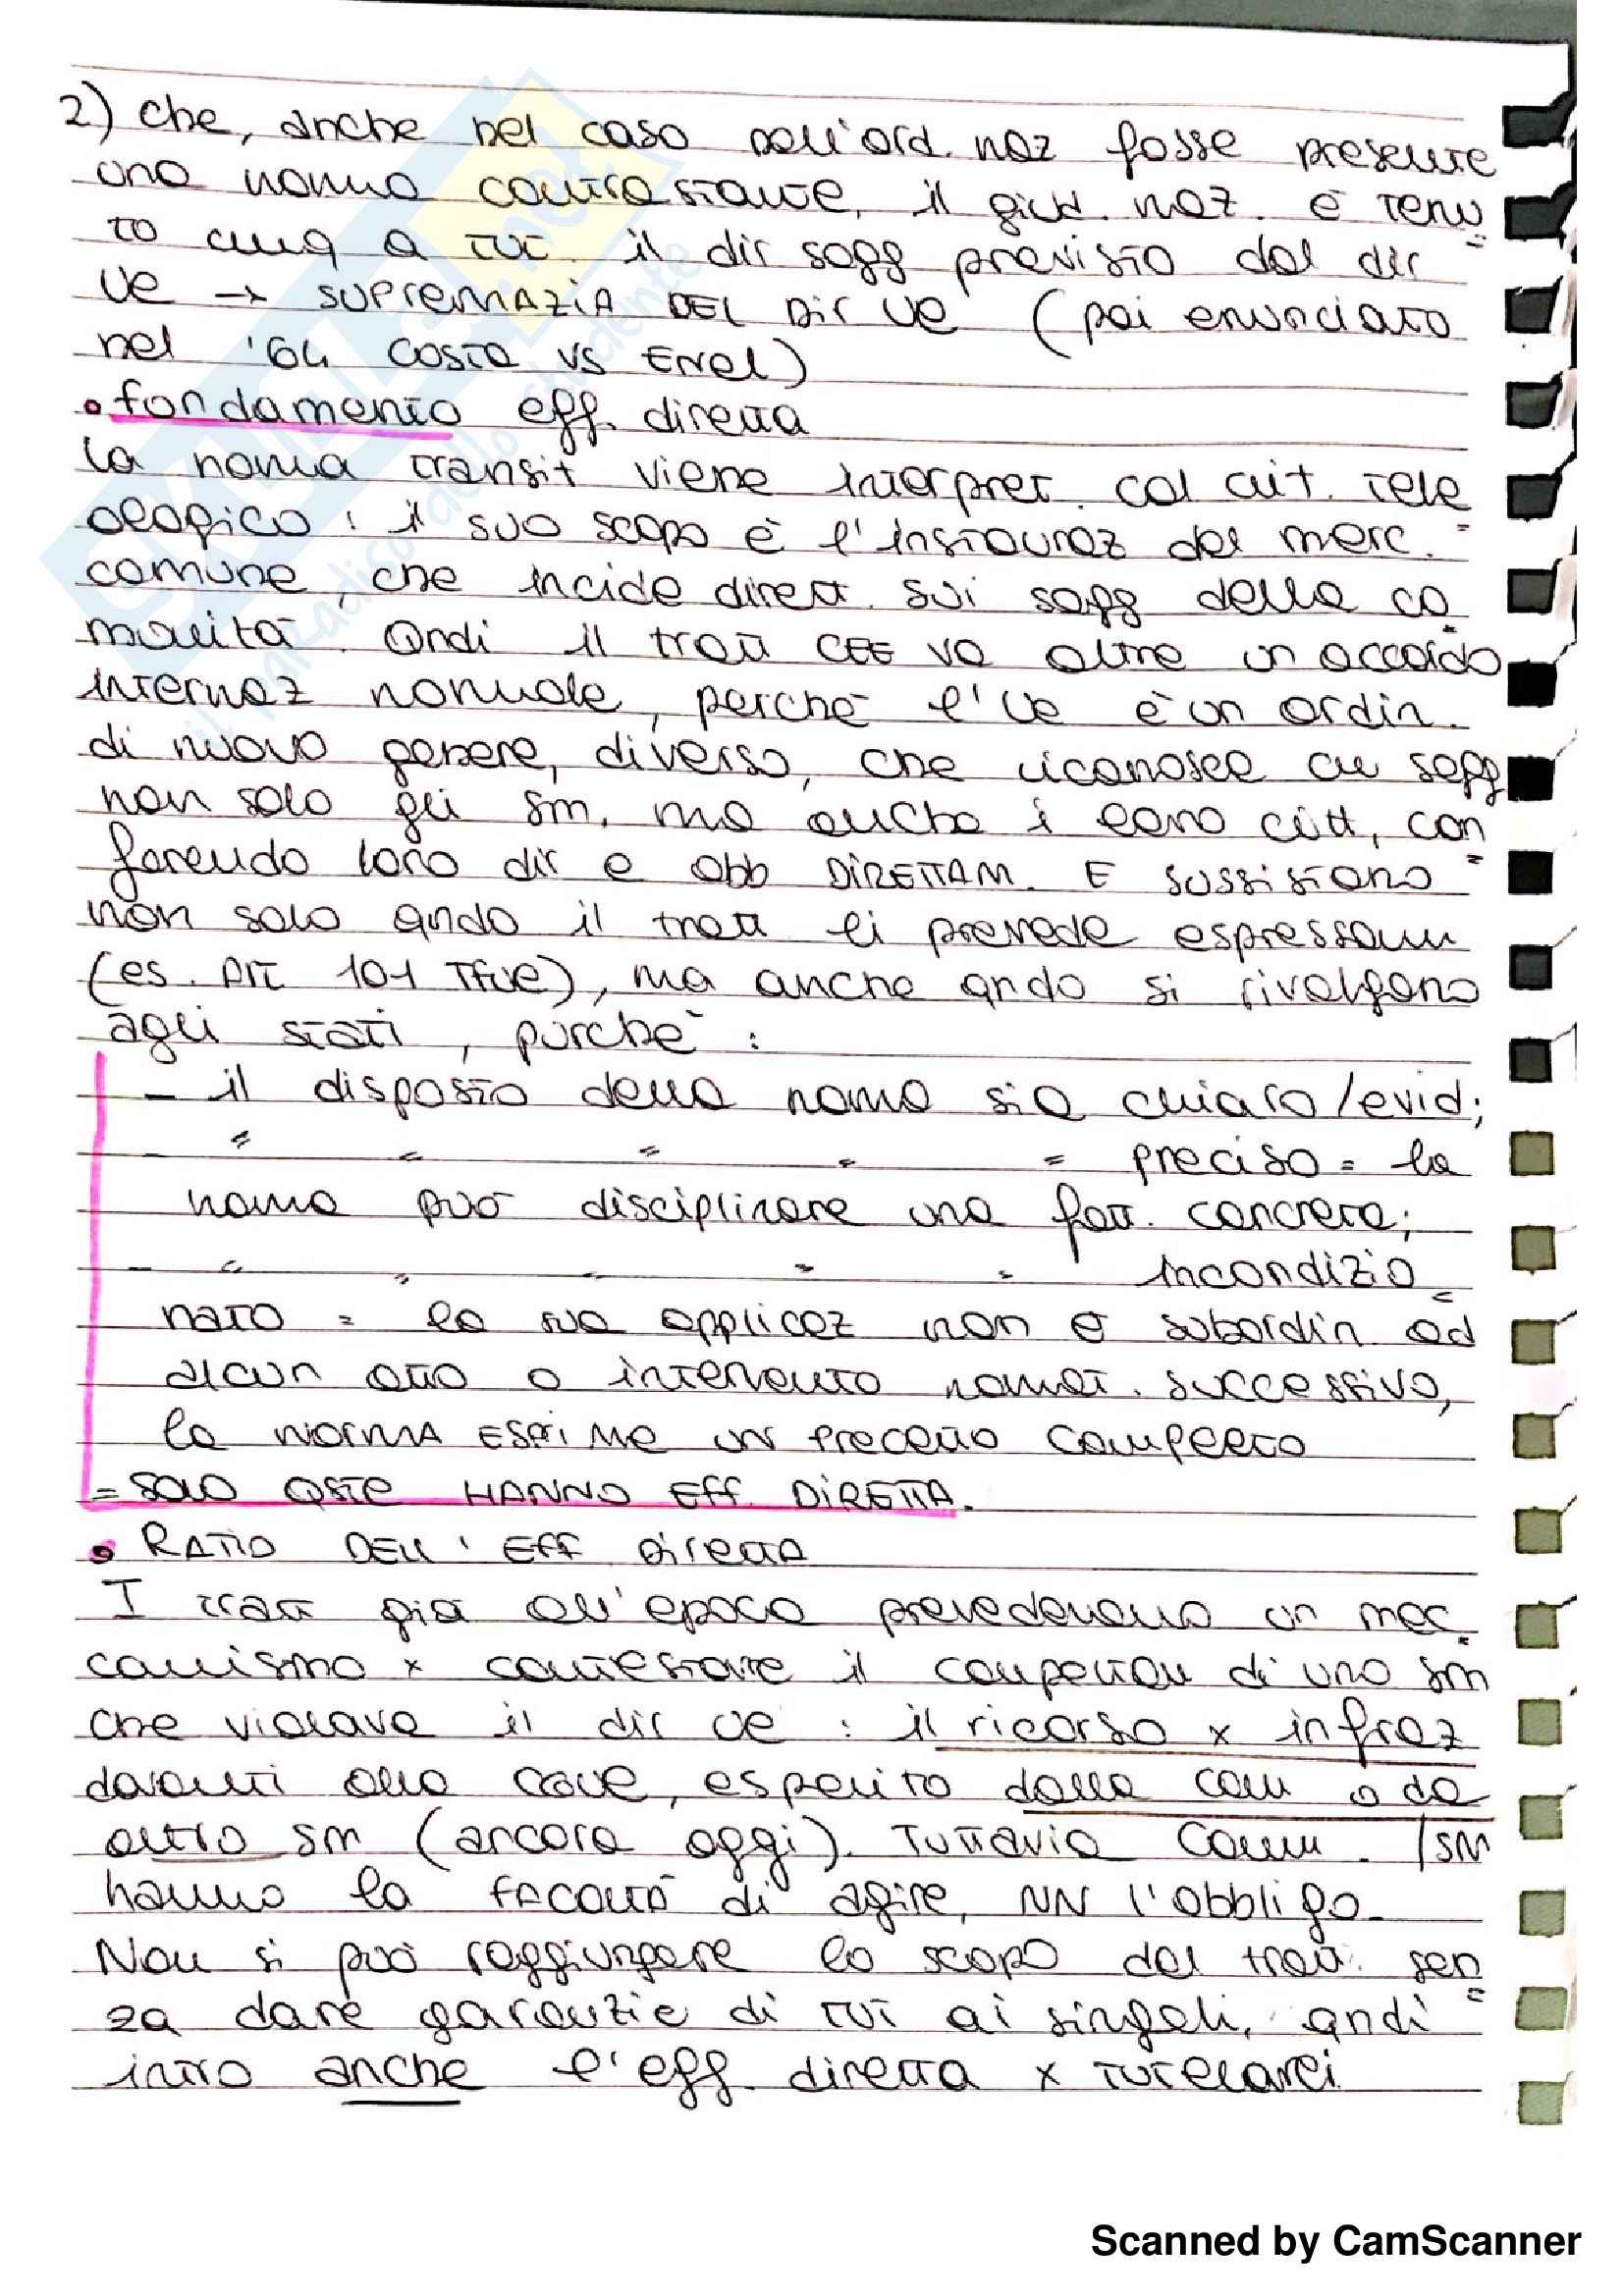 2) che, anche nel caso nell'ord. naz fosse presente
una norma contrastante, il giud. naz. è tenu=
to cmq a tut. il dir sogg previsto dal dir
UE → SUPREMAZIA DEL DIR UE (poi enunciato
nel '64 COSTA VS ENEL)
• fondamento eff. diretta
la norma transit viene interpret. col crit. tele=
ologico: il suo scopo è l'instauraz del merc.
comune, che incide dirett. sui sogg della co=
munità. Qndi il tratt CEE va oltre un accordo
internaz normale, perché l'UE è un ordin.
di nuovo genere, diverso, che riconosce cm sogg
non solo gli SM, ma anche i loro citt, con=
ferendo loro dir e obb DIRETTAM. E sussistono
non solo qndo il tratt li prevede espressam
(es. art 101 TFUE), ma anche qndo si rivolgono
agli stati, purché:
- il disposto della norma sia chiaro/evid;
- " " " " " preciso = la
norma può disciplinare una fatt. concreta;
- " " " " " incondizio=
nato = la sua applicaz non è subordin ad
alcun atto o intervento normat. successivo,
la NORMA ESPRIME UN PRECETTO completo
= SOLO QSTE HANNO EFF. DIRETTA.
• RATIO DELL'EFF DIRETTA
I tratt già all'epoca prevedevano un mec=
canismo x contestare il comportam di uno SM
che violava il dir UE: il ricorso x infraz
davanti alla CGUE, esperito dalla Com o da
altro SM (ancora oggi). Tuttavia Comm. /SM
hanno la FACOLTÀ di agire, NN l'obbligo.
Non si può raggiungere lo scopo del tratt. sen=
za dare garanzie di tut ai singoli, qndi
intro anche l'eff. diretta x tutelarci
skuola.net
il paradiso dello studente
Scanned by CamScanner